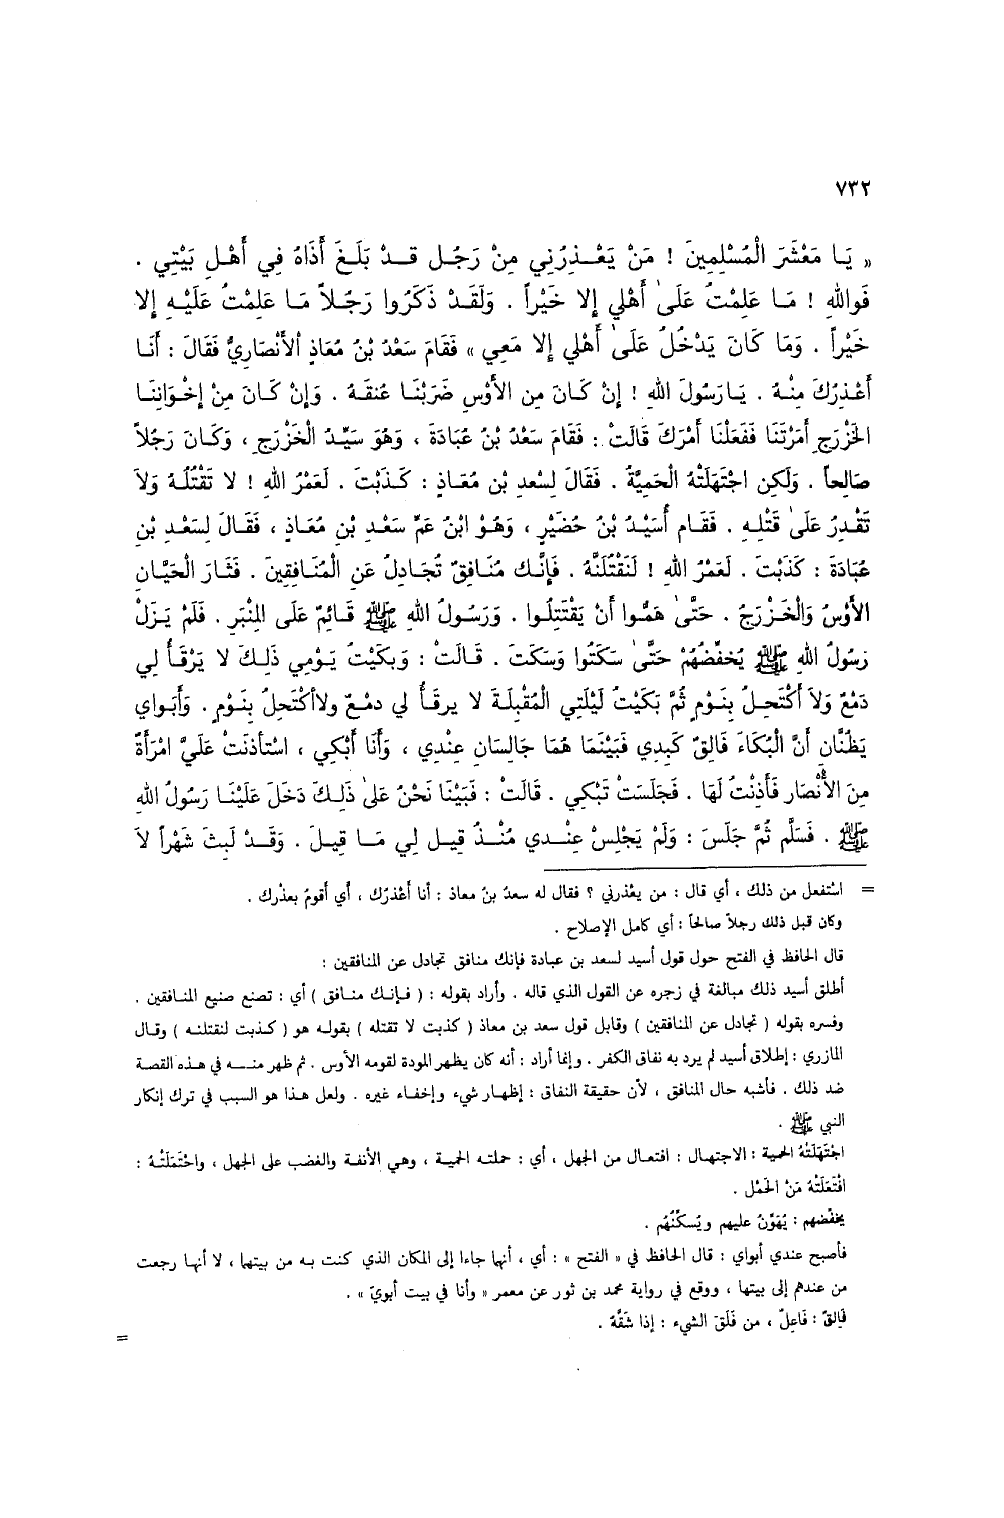 ٧٣٢
« يَا مَعْشَرَ الْمُسْلِمِينَ ! مَنْ يَعْذِرُنِي مِنْ رَجُل قَدْ بَلَغَ أَذَاهُ فِي أَهْلِ بَيْتِي .
فَوالله ! مَا عَلِمْتُ عَلَىٰ أَهْلي إلا خَيْراً . وَلَقَدْ ذَكَرُوا رَجُلاً مَا عَلِمْتُ عَلَيْهِ إلا
خَيْراً . وَمَا كَانَ يَدْخُلُ عَلَىٰ أَهْلي إلا مَعِي » فَقَامَ سَعْدُ بْنُ مُعَاذٍ الأَنْصَارِيُّ فَقَالَ : أَنَا
أَعْذِرُكَ مِنْهُ . يَارَسُولَ اللهِ ! إنْ كَانَ مِن الأَوْسِ ضَرَبْنَا عُنقَهُ . وَإنْ كَانَ مِنْ إخْوَانِنَا
الْخَزْرَجِ أَمَرْتَنَا فَفَعَلْنَا أَمْرَكَ قَالَتْ : فَقَامَ سَعْدُ بْنُ عُبَادَةَ ، وَهُوَ سَيِّدُ الْخَزْرَجِ ، وَكَانَ رَجُلاً
صَالِحاً . وَلَكِن اجْتَهَلَتْهُ الْحَمِيَّةُ . فَقَالَ لِسْعدِ بْنِ مُعَاذٍ : كَذَبْتَ . لَعَمْرُ اللهِ ! لا تَقْتُلُهُ وَلاَ
تَقْدِرُ عَلَىٰ قَتْلِهِ . فَقَام أُسَيْدُ بْنُ حُضَيْرٍ ، وَهُوْ ابْنُ عَمِّ سَعْدِ بْنِ مُعَاذٍ ، فَقَالَ لِسَعْدِ بْنِ
عُبَادَةَ : كَذَبْتَ . لَعَمْرُ اللهِ ! لَنَقْتُلَنَّهُ . فَإنَّكَ مُنَافِقٌ تُجَادِلُ عَنِ الْمُنَافِقِينَ . فَثَارَ الْحَيَّانِ
الأَوْسُ وَالْخَزْرَجُ . حَتَّىٰ هَمُّوا أَنْ يَقْتَتِلُوا . وَرَسُولُ اللهِ ﷺ قَائِمٌ عَلَى الْمِنْبَرِ . فَلَمْ يَزَلْ
رَسُولُ اللهِ ﷺ يُخَفِّضُهُمْ حَتَّىٰ سَكَتُوا وَسَكَتَ . قَالَتْ : وَبَكَيْتُ يَوْمِي ذَلِكَ لا يَرْقَأُ لِي
دَمْعٌ وَلاَ أَكْتَحِلُ بِنَوْمٍ ثُمَّ بَكَيْتُ لَيْلَتِي الْمُقْبِلَةَ لا يرقأُ لي دمْعٌ ولاأكْتَحِلُ بِنَوْمٍ . وَأَبَواي
يَظُنَّانِ أَنَّ الْبُكَاءَ فَالِقٌ كَبِدِي فَبَيْنَمَا هُمَا جَالِسَانِ عِنْدِي ، وَأَنَا أَبْكِي ، اسْتأذَنَتْ عَلَيَّ امْرَأَةٌ
مِنَ الأَنْصَارِ فَأَذِنْتُ لَهَا . فَجَلَسَتْ تَبْكِي . قَالَتْ : فَبَيْنَا نَحْنُ عَلىٰ ذَلِكَ دَخَلَ عَلَيْنَا رَسُولُ اللهِ
ﷺ . فَسَلَّمَ ثُمَّ جَلَسَ : وَلَمْ يَجْلِسْ عِنْدي مُنْذُ قِيلَ لِي مَا قِيلَ . وَقَدْ لَبِثَ شَهْراً لاَ
= استفعل من ذلك ، أي قال : من يعْذرني ؟ فقال له سعدُ بنُ معاذ : أنا أَعْذرُك ، أي أقومُ بعذْرك .
وكان قبل ذلك رجلاً صالحاً : أي كامل الإصلاح .
قال الحافظ في الفتح حول قول أسيد لسعد بن عبادة فإنك منافق تجادل عن المنافقين :
أطلق أسيد ذلك مبالغة في زجره عن القول الذي قاله . وأراد بقوله : ( فإنك منافق ) أي : تصنع صنيع المنافقين .
وفسره بقوله ( تجادل عن المنافقين ) وقابل قول سعد بن معاذ ( كذبت لا تقتله ) بقوله هو ( كذبت لنقتلنه ) وقال
المازري : إطلاق أسيد لم يرد به نفاق الكفر . وإنما أراد : أنه كان يظهر المودة لقومه الأوس . ثم ظهر منه في هذه القصة
ضد ذلك . فأشبه حال المنافق ، لأن حقيقة النفاق : إظهار شيء وإخفاء غيره . ولعل هذا هو السبب في ترك إنكار
النبي ﷺ .
اجْتَهَلَتْهُ الحمية : الاجتهال : افتعال من الجهل ، أي : حملته الحمية ، وهي الأنفة والغضب على الجهل ، واحْتَمَلَتْهُ :
افْتَعَلَتْهُ مَنْ الحَمْل .
يخفّضهم : يُهَوِّنُ عليهم ويُسكّنُهُم .
فأصبح عندي أبواي : قال الحافظ في « الفتح » : أي ، أنها جاءا إلى المكان الذي كنت به من بيتها ، لا أنها رجعت
من عندهم إلى بيتها ، ووقع في رواية محمد بن ثور عن معمر « وأنا في بيت أبويّ » .
فَالِقٌ : فَاعِلٌ ، من فَلَقَ الشيء : إذا شَقَّهُ .
=